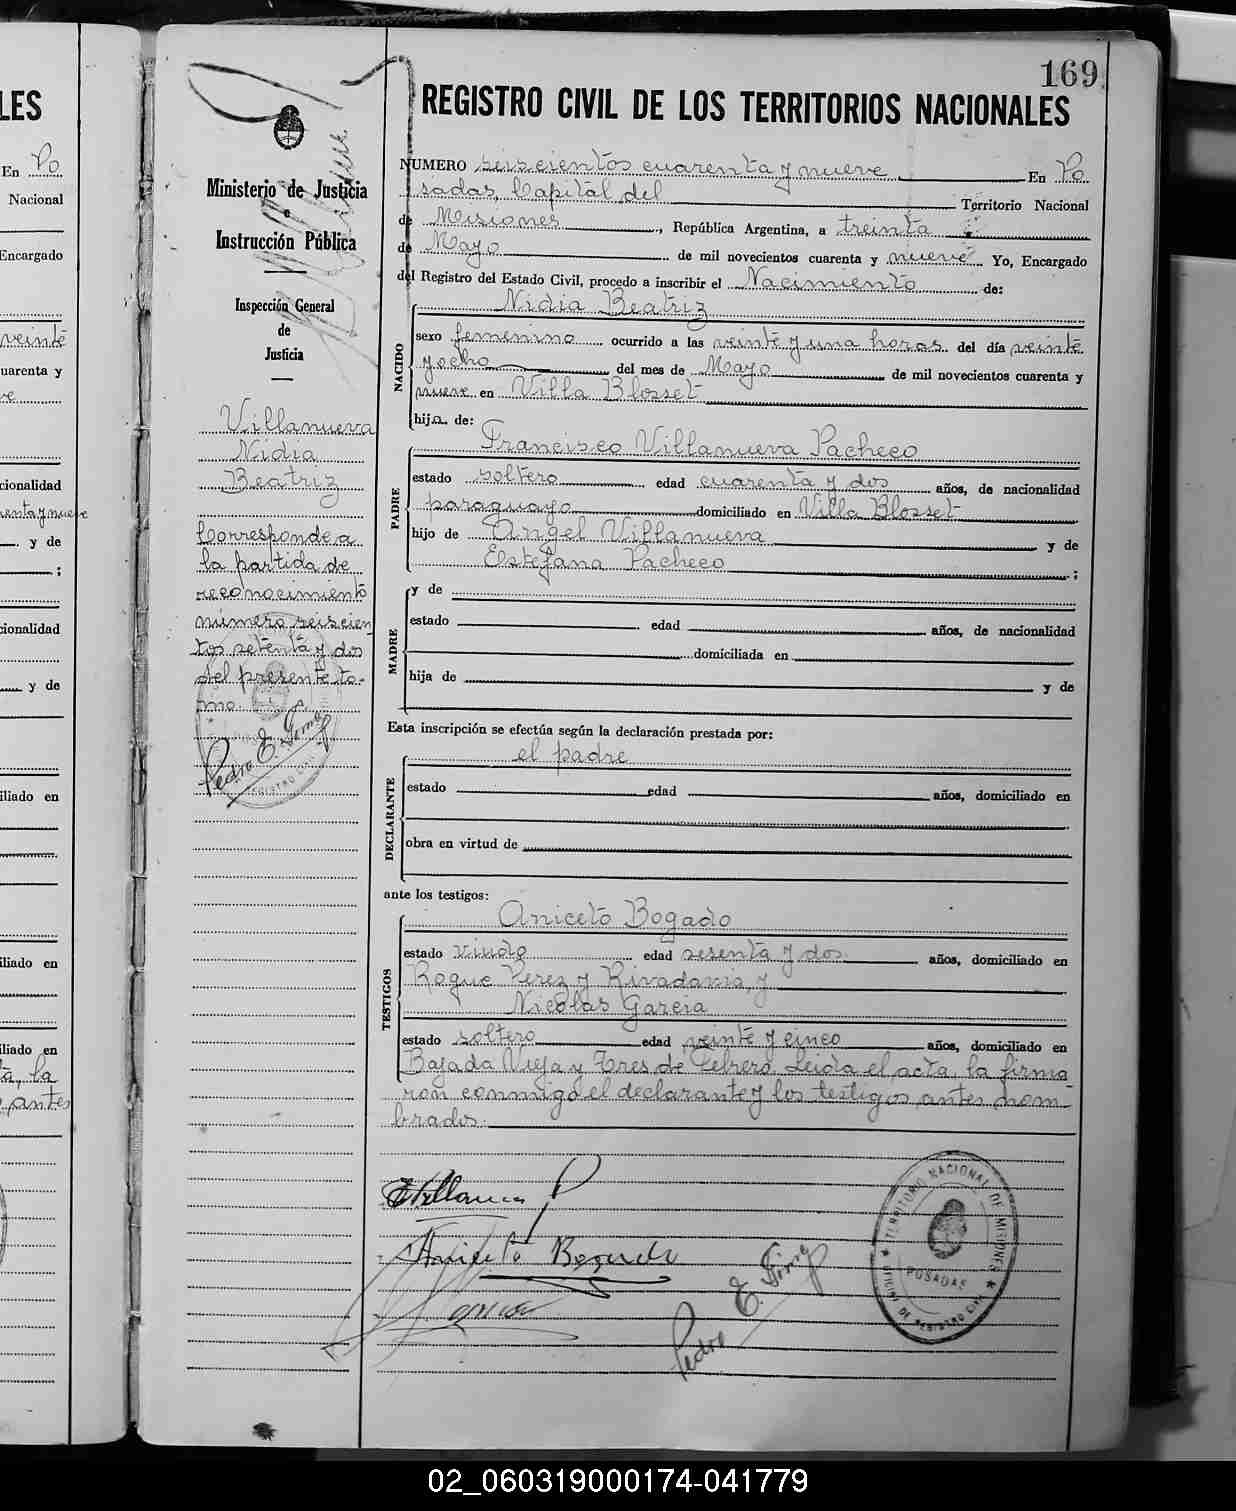 169
REGISTRO CIVIL DE LOS TERRITORIOS NACIONALES
NUMERO seiscientos cuarenta y nueve En Po
sadas, Capital del Territorio Nacional
de Misiones, República Argentina, a treinta
de Mayo de mil novecientos cuarenta y nueve Yo, Encargado
del Registro del Estado Civil, procedo a inscribir el Nacimiento de:
NACIDO
Nidia Beatriz
sexo femenino ocurrido a las veinte y una horas del día veinte
y ocho del mes de Mayo de mil novecientos cuarenta y
nueve en Villa Blosset
hija de:
PADRE
Francisco Villanueva Pacheco
estado soltero edad cuarenta y dos años, de nacionalidad
paraguayo domiciliado en Villa Blosset
hijo de Angel Villanueva y de
Estefana Pacheco ;
MADRE
y de
estado edad años, de nacionalidad
domiciliada en
hija de y de
Esta inscripción se efectúa según la declaración prestada por:
DECLARANTE
el padre
estado edad años, domiciliado en
obra en virtud de
ante los testigos:
TESTIGOS
Aniceto Bogado
estado viudo edad sesenta y dos años, domiciliado en
Roque Perez y Rivadavia, y
Nicolas Garcia
estado soltero edad veinte y cinco años, domiciliado en
Bajada Vieja y Tres de Febrero. Leida el acta, la firma
ron conmigo el declarante y los testigos antes nom-
brados.
Villanueva P
Aniceto Bogado
Garcia
Pedro E.
TERRITORIO NACIONAL DE MISIONES
POSADAS
OFICINA DE REGISTRO CIVIL
Ministerio de Justicia
e
Instrucción Pública
Inspección General
de
Justicia
Villanueva
Nidia
Beatriz
Corresponde a
la partida de
reconocimiento
número seiscien
tos setenta y dos
del presente to-
mo.
Pedro E.
REGISTRO CIVIL
LES
En Po
Nacional
Encargado
veinte
uarenta y
ve
cionalidad
y de
;
cionalidad
y de
iliado en
iliado en
iliado en
ta, la
antes
02_060319000174-041779